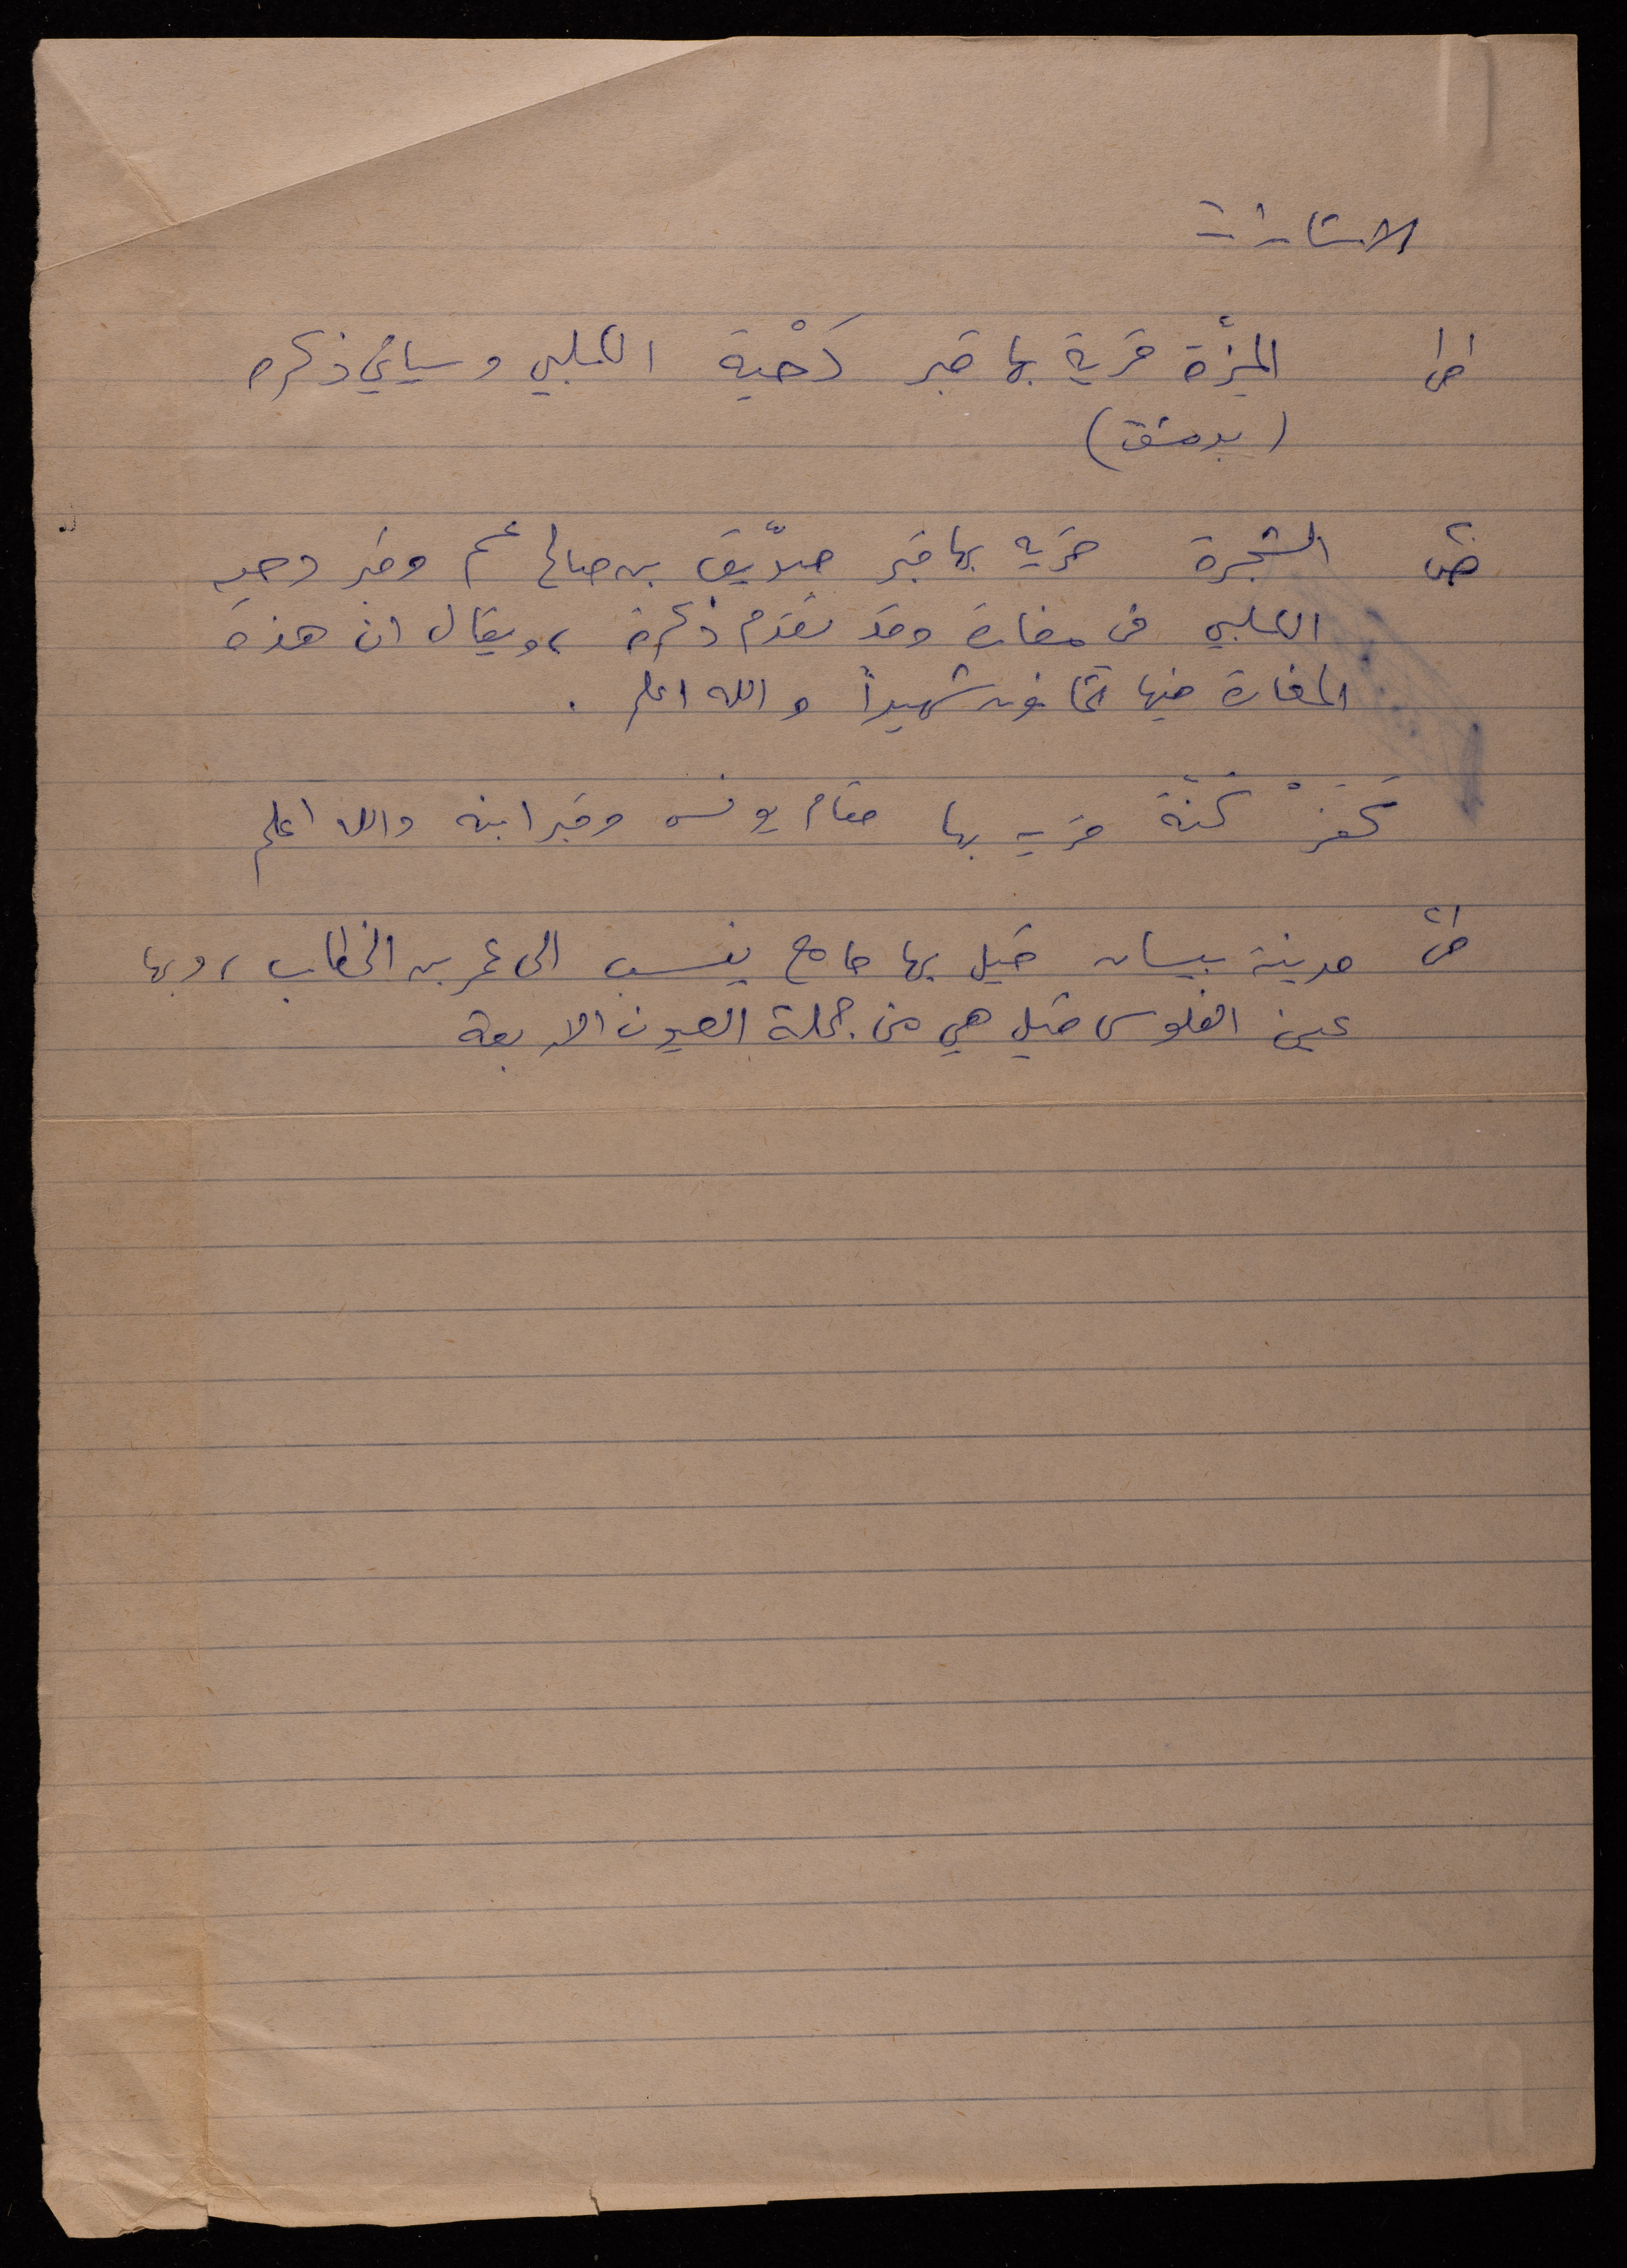 الاشارات
ص١١ المِزَّة قرية بها قبر دَحْية الكلبي وسيأتي ذكره
(بدمشق)
الشجرة قريه بها قبر صدّيق بن صالح عم وقبر دحيه
الكلبي في مغارة وقد تقدم ذكره، ويقال ان هذه
المغارة فيها ثمانون شهيداً والله اعلم .
كَفَرْ كَنّة قريه بها مقام يونس وقبر ابنه والله اعلم
مدينة بيسان قيل بها جامع ينسب الى عمر بن الخطاب، وبها
عين الفلوس قيل هي من جملة العيون الاربعة